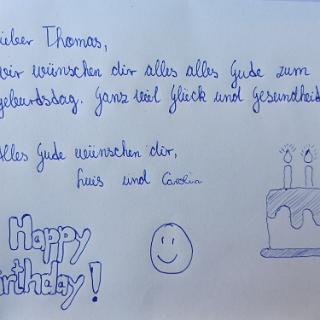 ieber Thomas,
wir wünschen dir alles alles Gude zum
geburdsdag. Ganz viel Glück und Gesundheid
Alles Gude wünschen dir,
Luis und Carolin
Happy
irthday!